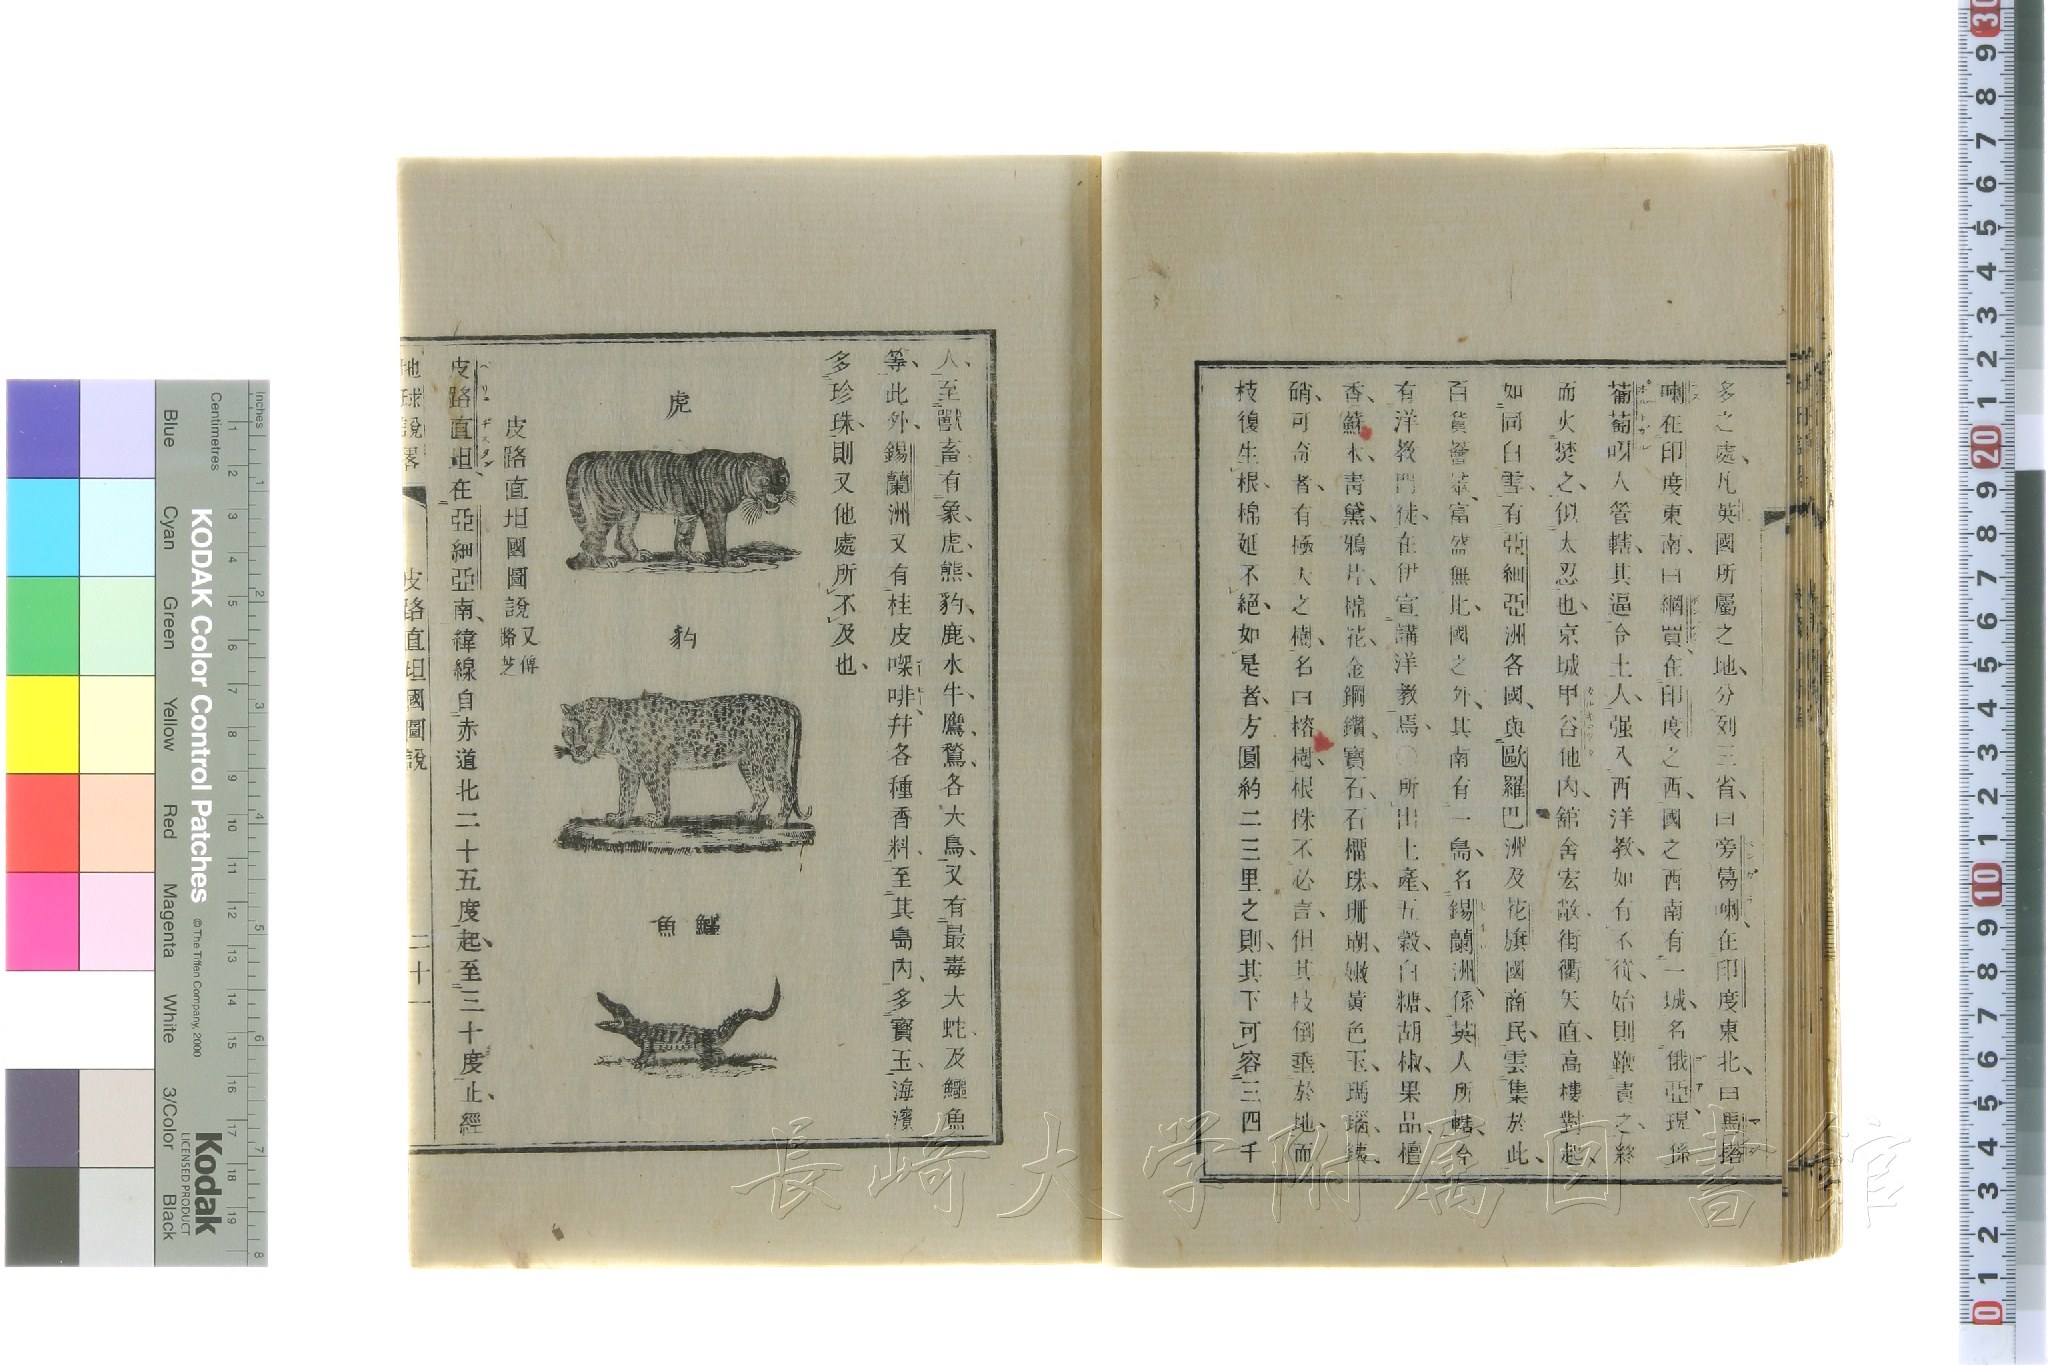 多之處、凡英國所屬之地、分列三省、曰旁葛喇、在印度東北、曰馬搭
喇在印度東南、曰網買、在印度之西、國之西南有一城、名俄亞、現係
葡萄呀人管轄、其逼令土人、强入西洋教、如有不從、始則鞭責之、終
而火焚之、似太忍也、京城甲谷他、内舘舍宏敞、街衢矢直、高樓對起、
如同白雪、有亞細亞洲各國、與歐羅巴洲及花旗國商民、雲集於此、
百貨薈萃、富盛無比、國之外、其南有一島、名錫蘭洲、係英人所轄、今
有洋教門徒、在伊宣講洋教焉、〇所出土產、五穀、白糖、胡椒、果品、檀
香、蘇木、靑黛、鴉片、棉花、金鋼鑽、寶石、石橊珠、珊瑚、嫩黃色玉、瑪瑙、鏽
硝、可奇者、有極大之樹、名曰榕樹、根株不必言、但其枝倒垂於地、而
枝復生根、棉延不絕、如是者、方圓約二三里之則、其下可容三四千
人、至獸畜有象、虎、熊、豹、鹿、水牛、鷹、鶩、各大鳥、又有最毒大蛇、及鱷魚
等、此外、錫蘭洲又有桂皮㗎啡、幷各種香料、至其島内、多寳玉、海濱
多珍珠、則又他處所不及也、
虎
豹
鱷魚
皮路直坦國圖說 又傅略芝
皮路直坦、在亞細亞南、緯線自赤道北二十五度起、至三十度止、經
地球說畧 皮路直坦國圖說 二十一
長崎大学附属図書館
KODAK Color Control Patches
© The Tiffen Company, 2000
Kodak
LICENSED PRODUCT
Inches
Centimetres
Blue
Cyan
Green
Yellow
Red
Magenta
White
3/Color
Black